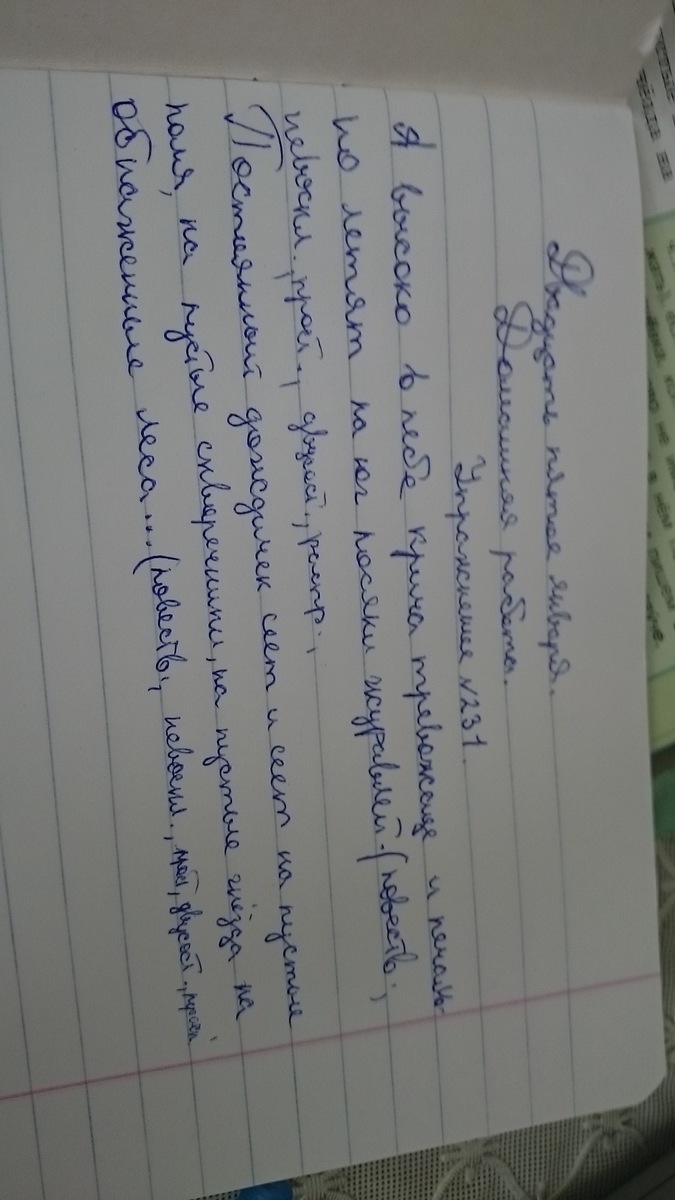 Двадцать пятое января.
Домашняя работа.
Упражнение №231.
А высоко в небе крича тревожаще и печаль-
но летят на юг косяки журавлей. (повеств.,
невоскл., прост., двусост., распр.,
Постоянный дождичек сеет и сеет на пустые
поля, на пустые скворечники, на пустые гнёзда на
обнаженные леса... (повеств., невоскл., прост, двусост.,